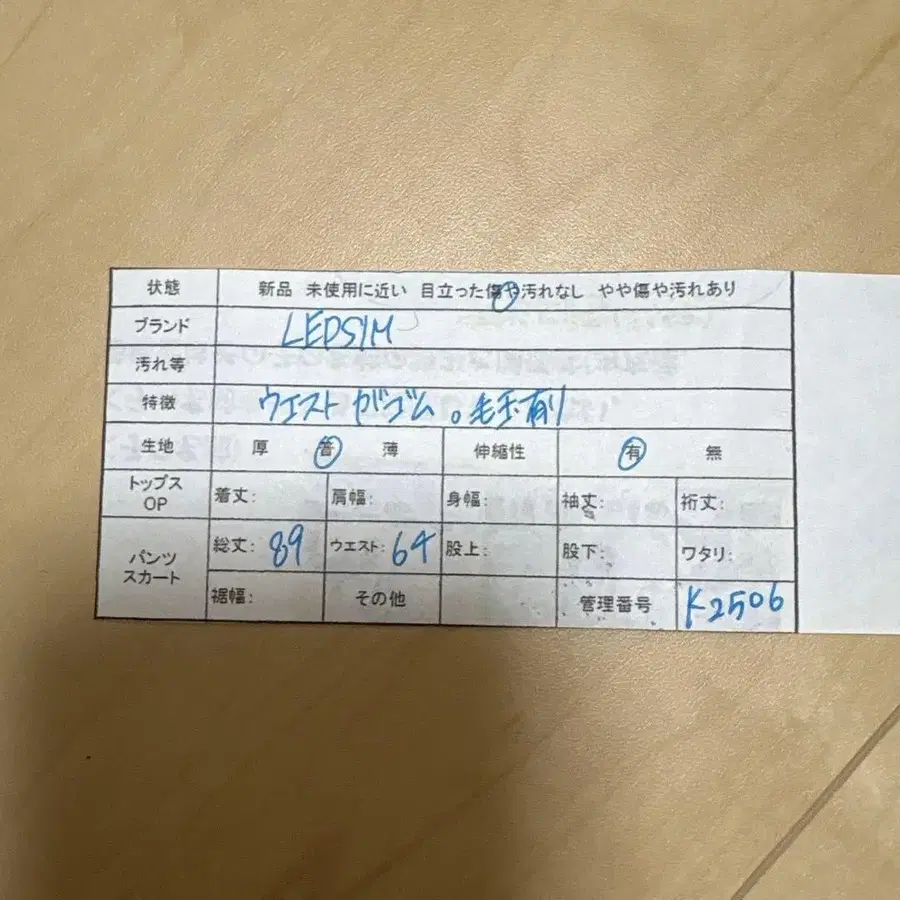 状態 新品 未使用に近い 目立った傷や汚れなし やや傷や汚れあり
ブランド LEPSIM
汚れ等
特徴 ウエスト ゴム。毛玉有り
生地 厚 普 薄 伸縮性 有 無
トップス OP 着丈: 肩幅: 身幅: 袖丈: 裄丈:
パンツ スカート 総丈: 89 ウエスト: 64 股上: 股下: ワタリ:
裾幅: その他 管理番号 K2506